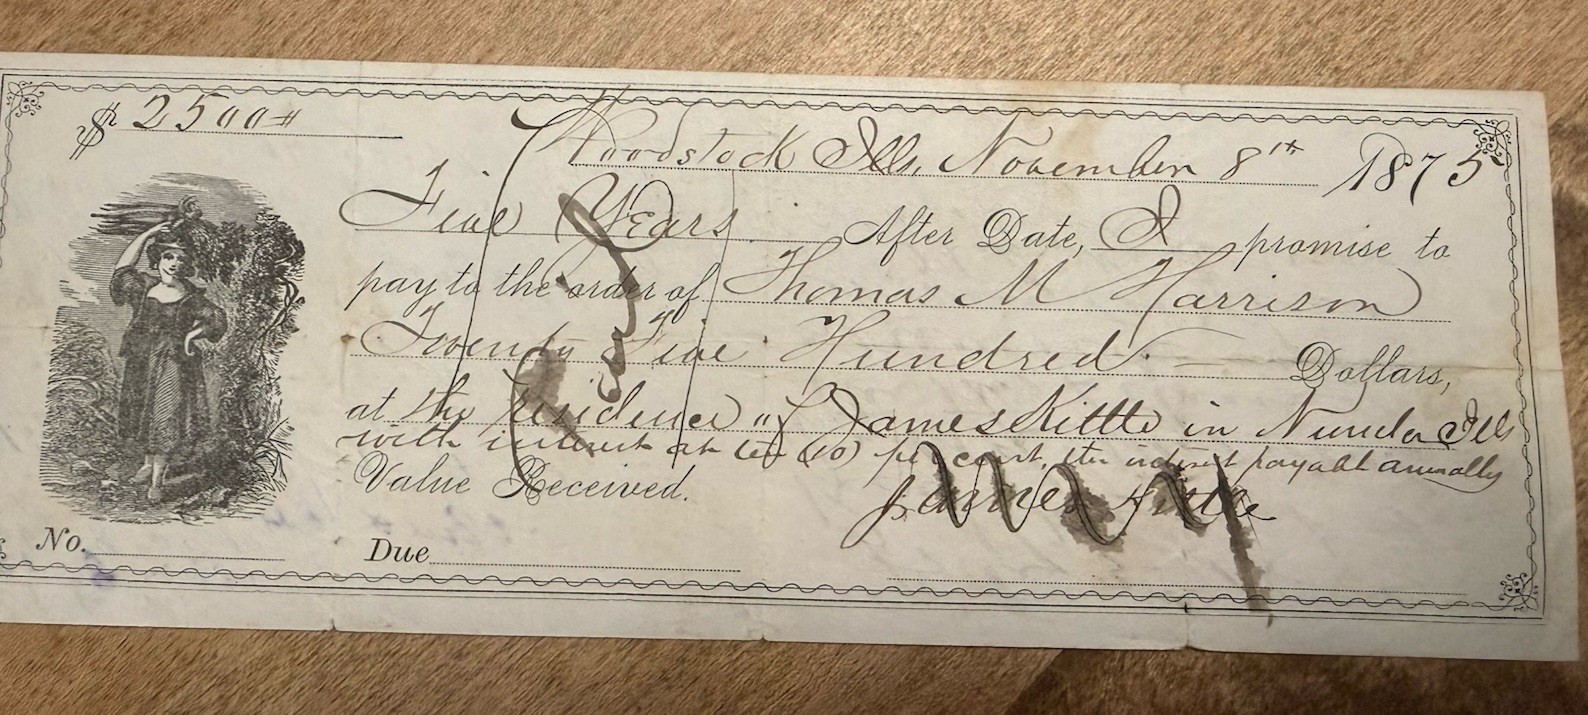 $ 2500#
Woodstock Ills, November 8th 1875
Five Years After Date, I promise to
pay to the order of Thomas M Harrison
Twenty Five Hundred — Dollars,
at the residence of James Kittle in Nunda Ills
with interest at ten (10) per cent, the interest payable annually
Value Received.
James Kittle
No.
Due